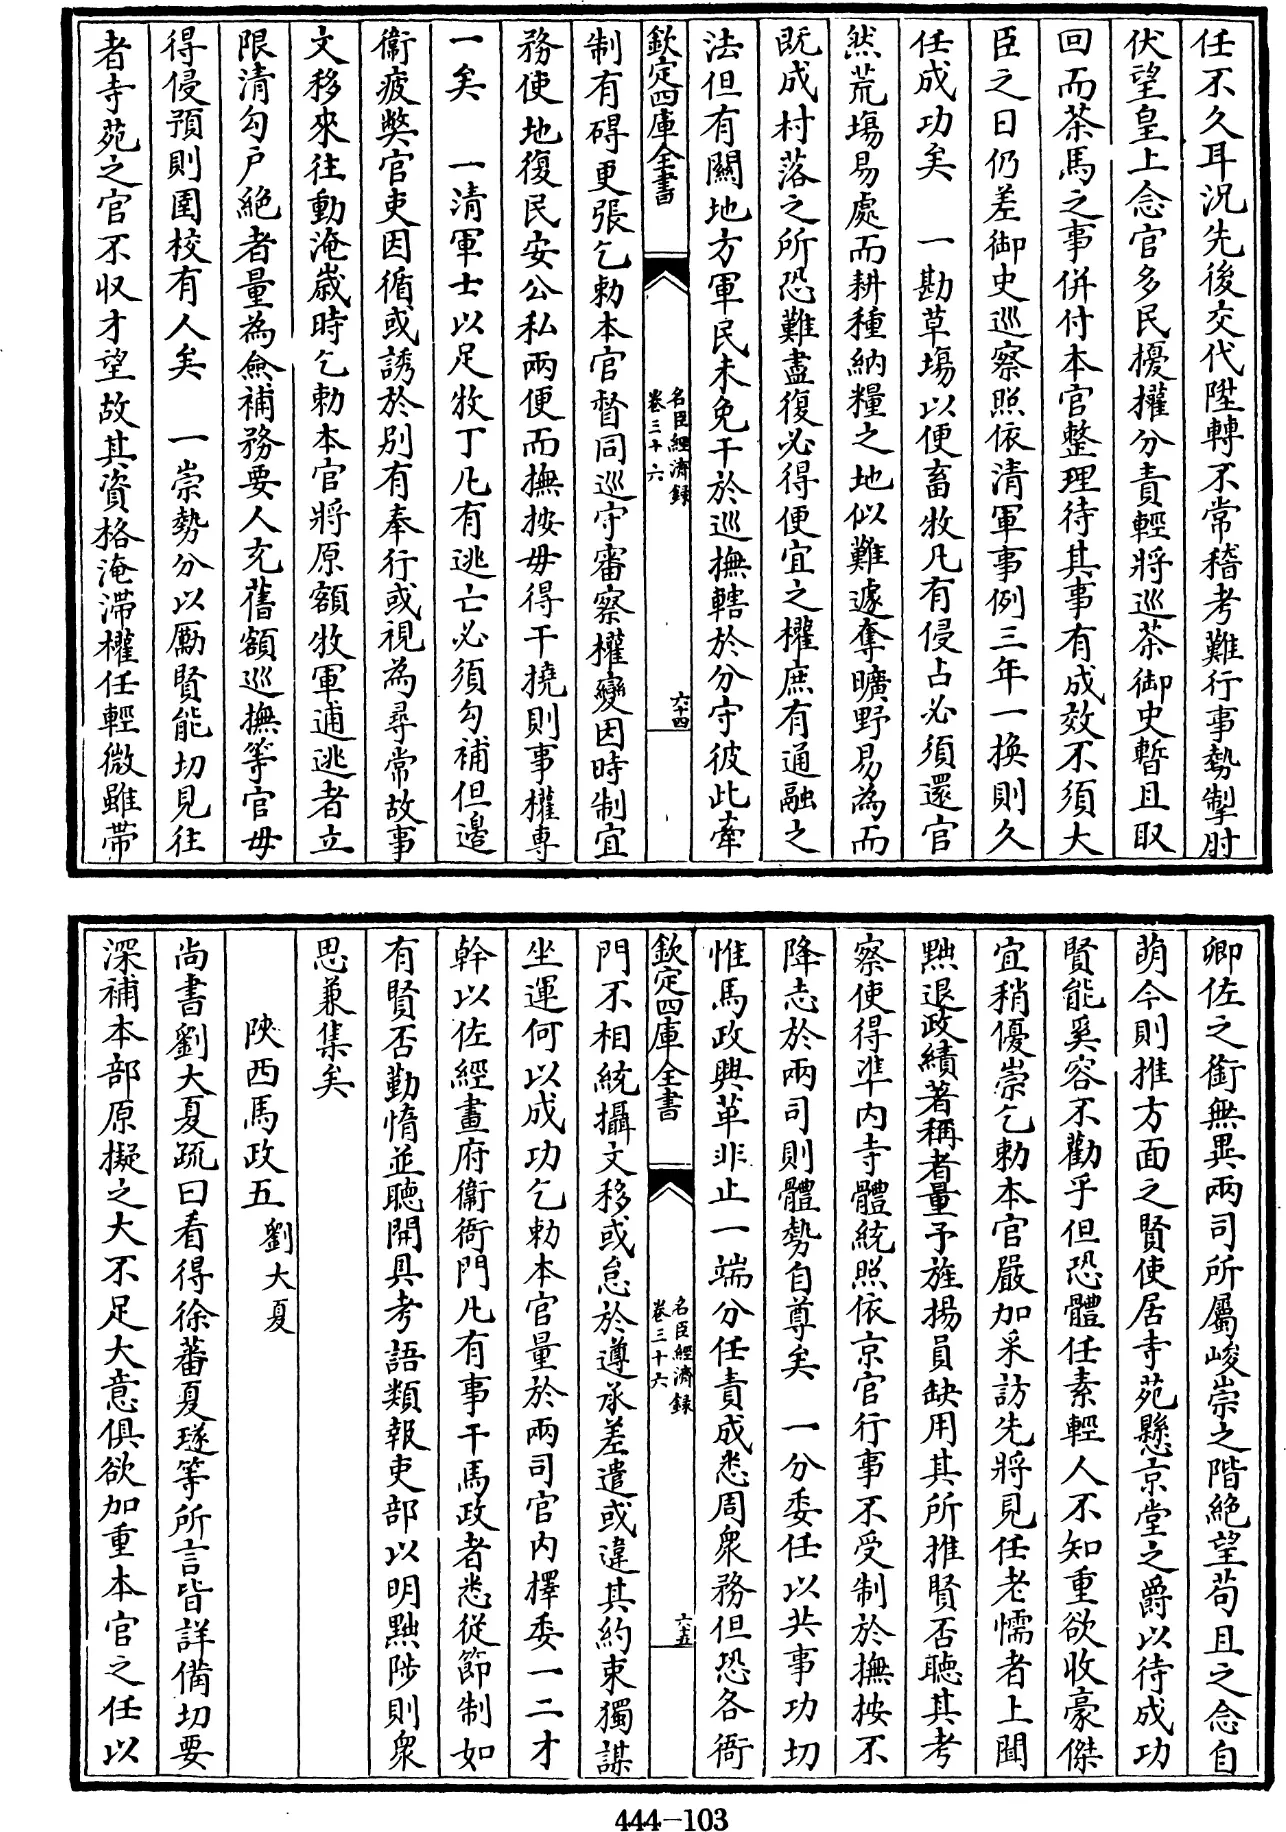 任不久耳況先後交代陞轉不常稽考難行事勢掣肘
伏望皇上念官多民擾權分責輕將巡茶御史暫且取
回而茶馬之事併付本官整理待其事有成效不須大
臣之日仍差御史巡察照依清軍事例三年一換則久
任成功矣　一勘草場以便畜牧凡有侵占必須還官
然荒塲易處而耕種納糧之地似難遽奪曠野易為而
既成村落之所恐難盡復必得便宜之權庶有通融之
法但有關地方軍民未免干於巡撫轄於分守彼此牽
欽定四庫全書　名臣經濟録　卷三十六　六十四
制有碍更張乞勅本官督同巡守審察權變因時制宜
務使地復民安公私兩便而撫按毋得干撓則事權專
一矣　一清軍士以足牧丁凡有逃亡必須勾補但邉
衞疲弊官吏因循或誘於别有奉行或視為尋常故事
文移來往動淹歲時乞勅本官將原額牧軍逋逃者立
限清勾户絶者量為僉補務要人充舊額巡撫等官毋
得侵預則圉校有人矣　一崇勢分以勵賢能切見往
者寺苑之官不収才望故其資格淹滯權任輕微雖帶
卿佐之銜無異兩司所屬峻崇之階絶望苟且之念自
萌今則推方面之賢使居寺苑懸京堂之爵以待成功
賢能奚容不勸乎但恐體任素輕人不知重欲收豪傑
宜稍優崇乞勅本官嚴加采訪先將見任老懦者上聞
黜退政績著稱者量予旌揚員缺用其所推賢否聴其考
察使得凖内寺體統照依京官行事不受制於撫按不
降志於兩司則體勢自尊矣　一分委任以共事功切
惟馬政興革非止一端分任責成悉周衆務但恐各衙
欽定四庫全書　名臣經濟録　卷三十六　六十五
門不相統攝文移或怠於遵承差遣或違其約束獨謀
坐運何以成功乞勅本官量於兩司官内擇委一二才
幹以佐經畫府衞衙門凡有事干馬政者悉從節制如
有賢否勤惰並聴開具考語類報吏部以明黜陟則衆
思兼集矣
陜西馬政五　劉大夏
尚書劉大夏疏曰看得徐蕃夏璲等所言皆詳備切要
深補本部原擬之大不足大意俱欲加重本官之任以
444-103